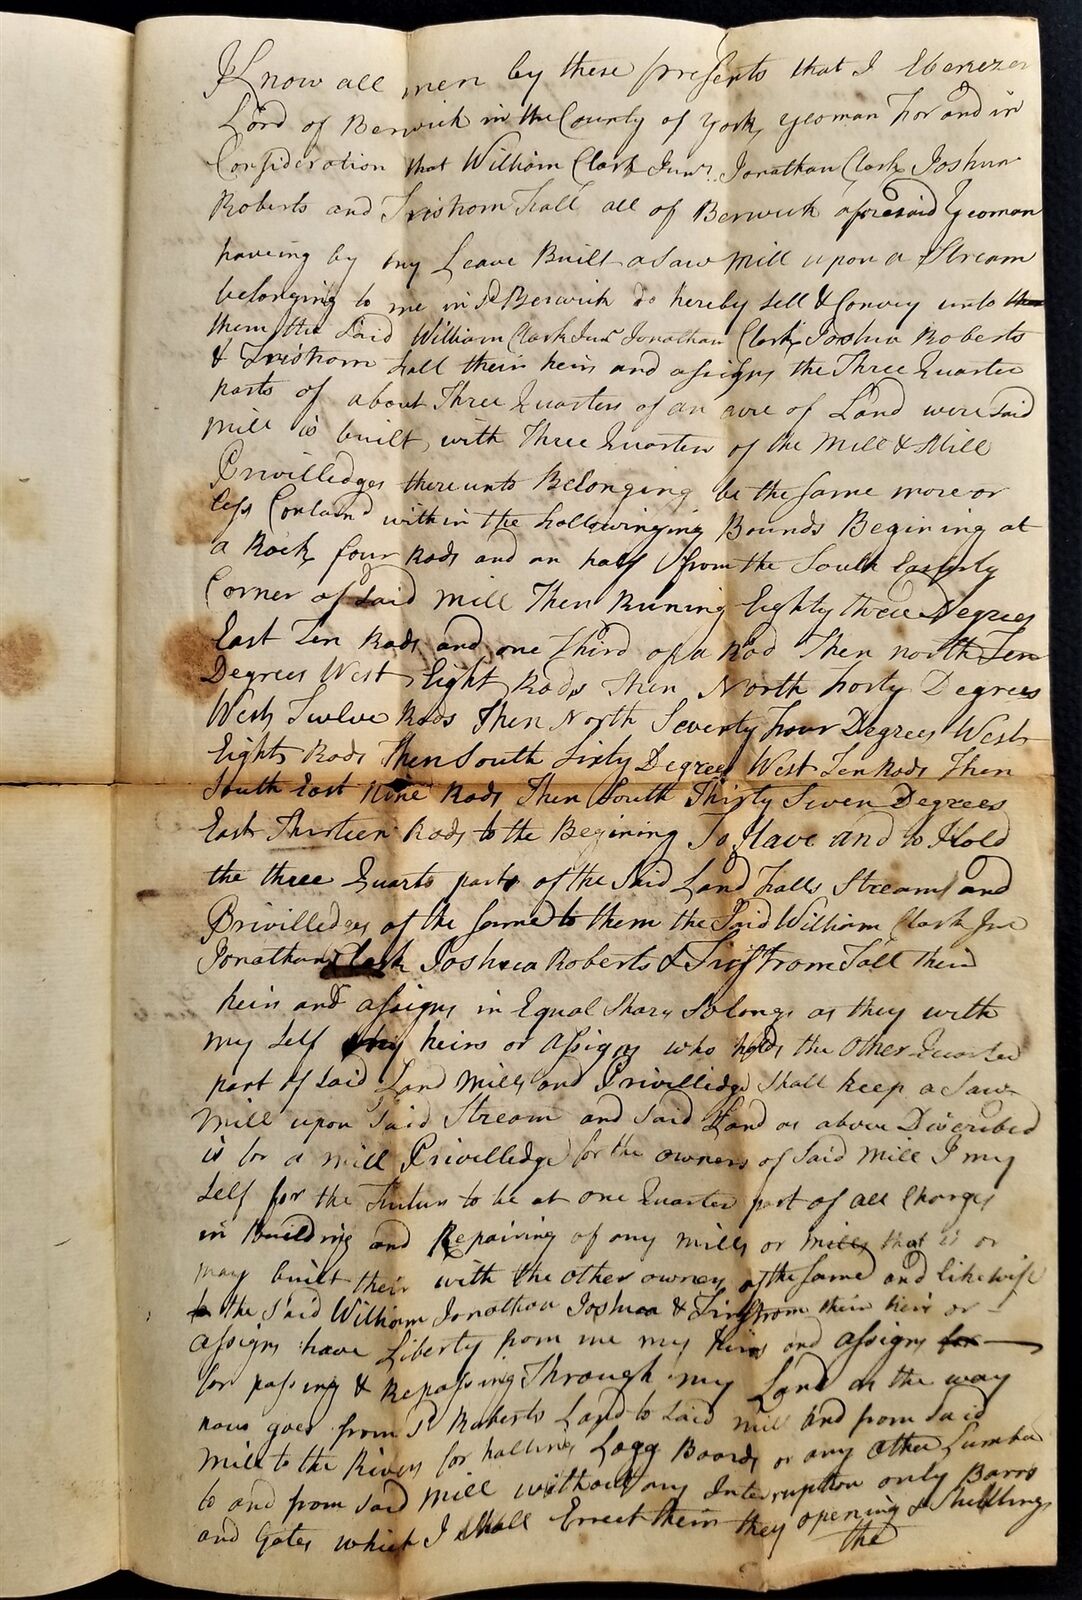 Know all men by these presents that I Ebenezer
Lord of Berwick in the County of York, Yeoman For and in
Consideration that William Clark Junr. Jonathan Clark Joshua
Roberts and Tristrom Fall all of Berwick aforesaid Yeoman
haveing by my Leave Built a Saw Mill upon a Stream
belonging to me in Sd Berwick do hereby Sell & Convey unto
them the Said William Clark Junr Jonathan Clark Joshua Roberts
& Tristrom Fall their heirs and assigns the Three Quarter
parts of about Three Quarters of an acre of Land were Said
Mill is built, with Three Quarters of the Mill & Mill
Privilledges thereunto Belonging be the same more or
less Containd within the followinging Bounds Begining at
a Rock four Rods and an half from the South Easterly
Corner of Said Mill Then Runing Eighty three Degrees
East Ten Rods and one Third of a Rod Then north Ten
Degrees West Eight Rods Then North forty Degrees
West Twelve Rods Then North Seventy Four Degrees West
Eight Rods Then South Sixty Degrees West Ten Rods Then
South East Nine Rods Then South Thirty Seven Degrees
East Thirteen Rods to the Begining To Have and to Hold
the three Quarts parts of the Said Land Falls Streams and
Privilledges of the Same to them the Said William Clark Jur
Jonathan Clark Joshua Roberts & Tristrom Fall their
heirs and assigns in Equal Shars So long as they with
my Self my heirs or Assigns who holds the Other Quarter
part of Said Land Mills and Privilledge Shall keep a Saw
Mill upon Said Stream and Said Land as above Discribed
is for a Mill Privelledge for the owners of Said Mill I my
Self for the Futur to be at one Quarter part of all Charges
in Building and Repairing of any Mills or Mills that is or
may built their with the other owners of the Same and likewise
the Said William Jonathan Joshua & Tristrom their heirs or
assigns have Liberty from me my heirs and assigns for
for passing & Repassing Through my Land as the way
now goes from Sd Roberts Land to Said Mill and from Said
Mill to the River for halling Logg Boards or any Other Lumber
to and from Said Mill without any Interruption only Barrs
and Gates which I Shall Errect their they opening & Shutting
the